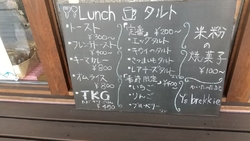 Lunch
・トースト
¥300〜
・フレンチトースト
¥400〜
・キーマカレー
¥800
・オムライス
¥800
・TKG
¥450
タルト
定番 ¥200〜
・エッグタルト
・キウイのタルト
・さつまいもタルト
・レアチーズタルト
・いちご
・りんご
・ブルーベリー
米粉
の
焼菓子
¥100〜
Y's brekkie